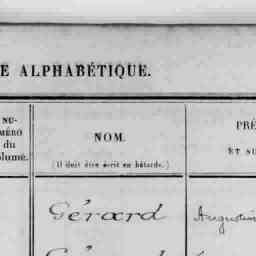 E ALPHABÉTIQUE.
NU-
MÉRO
du
olume.
NOM.
(Il doit être écrit en bâtarde.)
PRÉ
ET SU
Gérard
Augustin